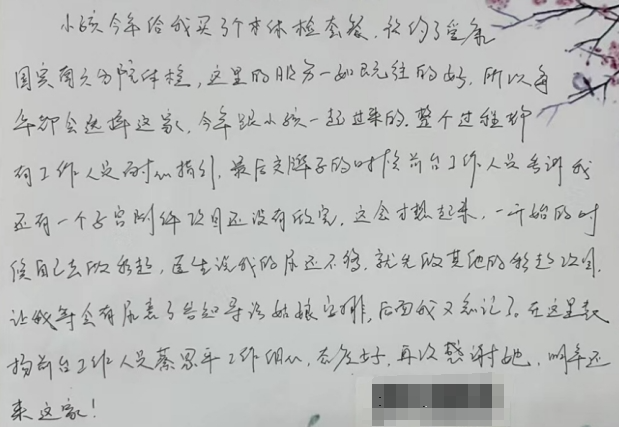 小孩今年给我买了个体检套餐，预约了爱康
国宾南六分院体检，这里的服务一如既往的好，所以每
年都会选择这家，今年跟小孩一起过来的，整个过程都
有工作人员耐心指引，最后交牌子的时候前台工作人员告诉我
还有一个子宫附件项目还没有做完，这会才想起来，一开始的时
候自己去做彩超，医生说我的尿还不够，就先做其他的彩超项目，
让我等会有尿意了告知导诊姑娘安排，后面我又忘记了。在这里表
扬前台工作人员蔡 平工作细心，态度好，再次感谢她，明年还
来这家！